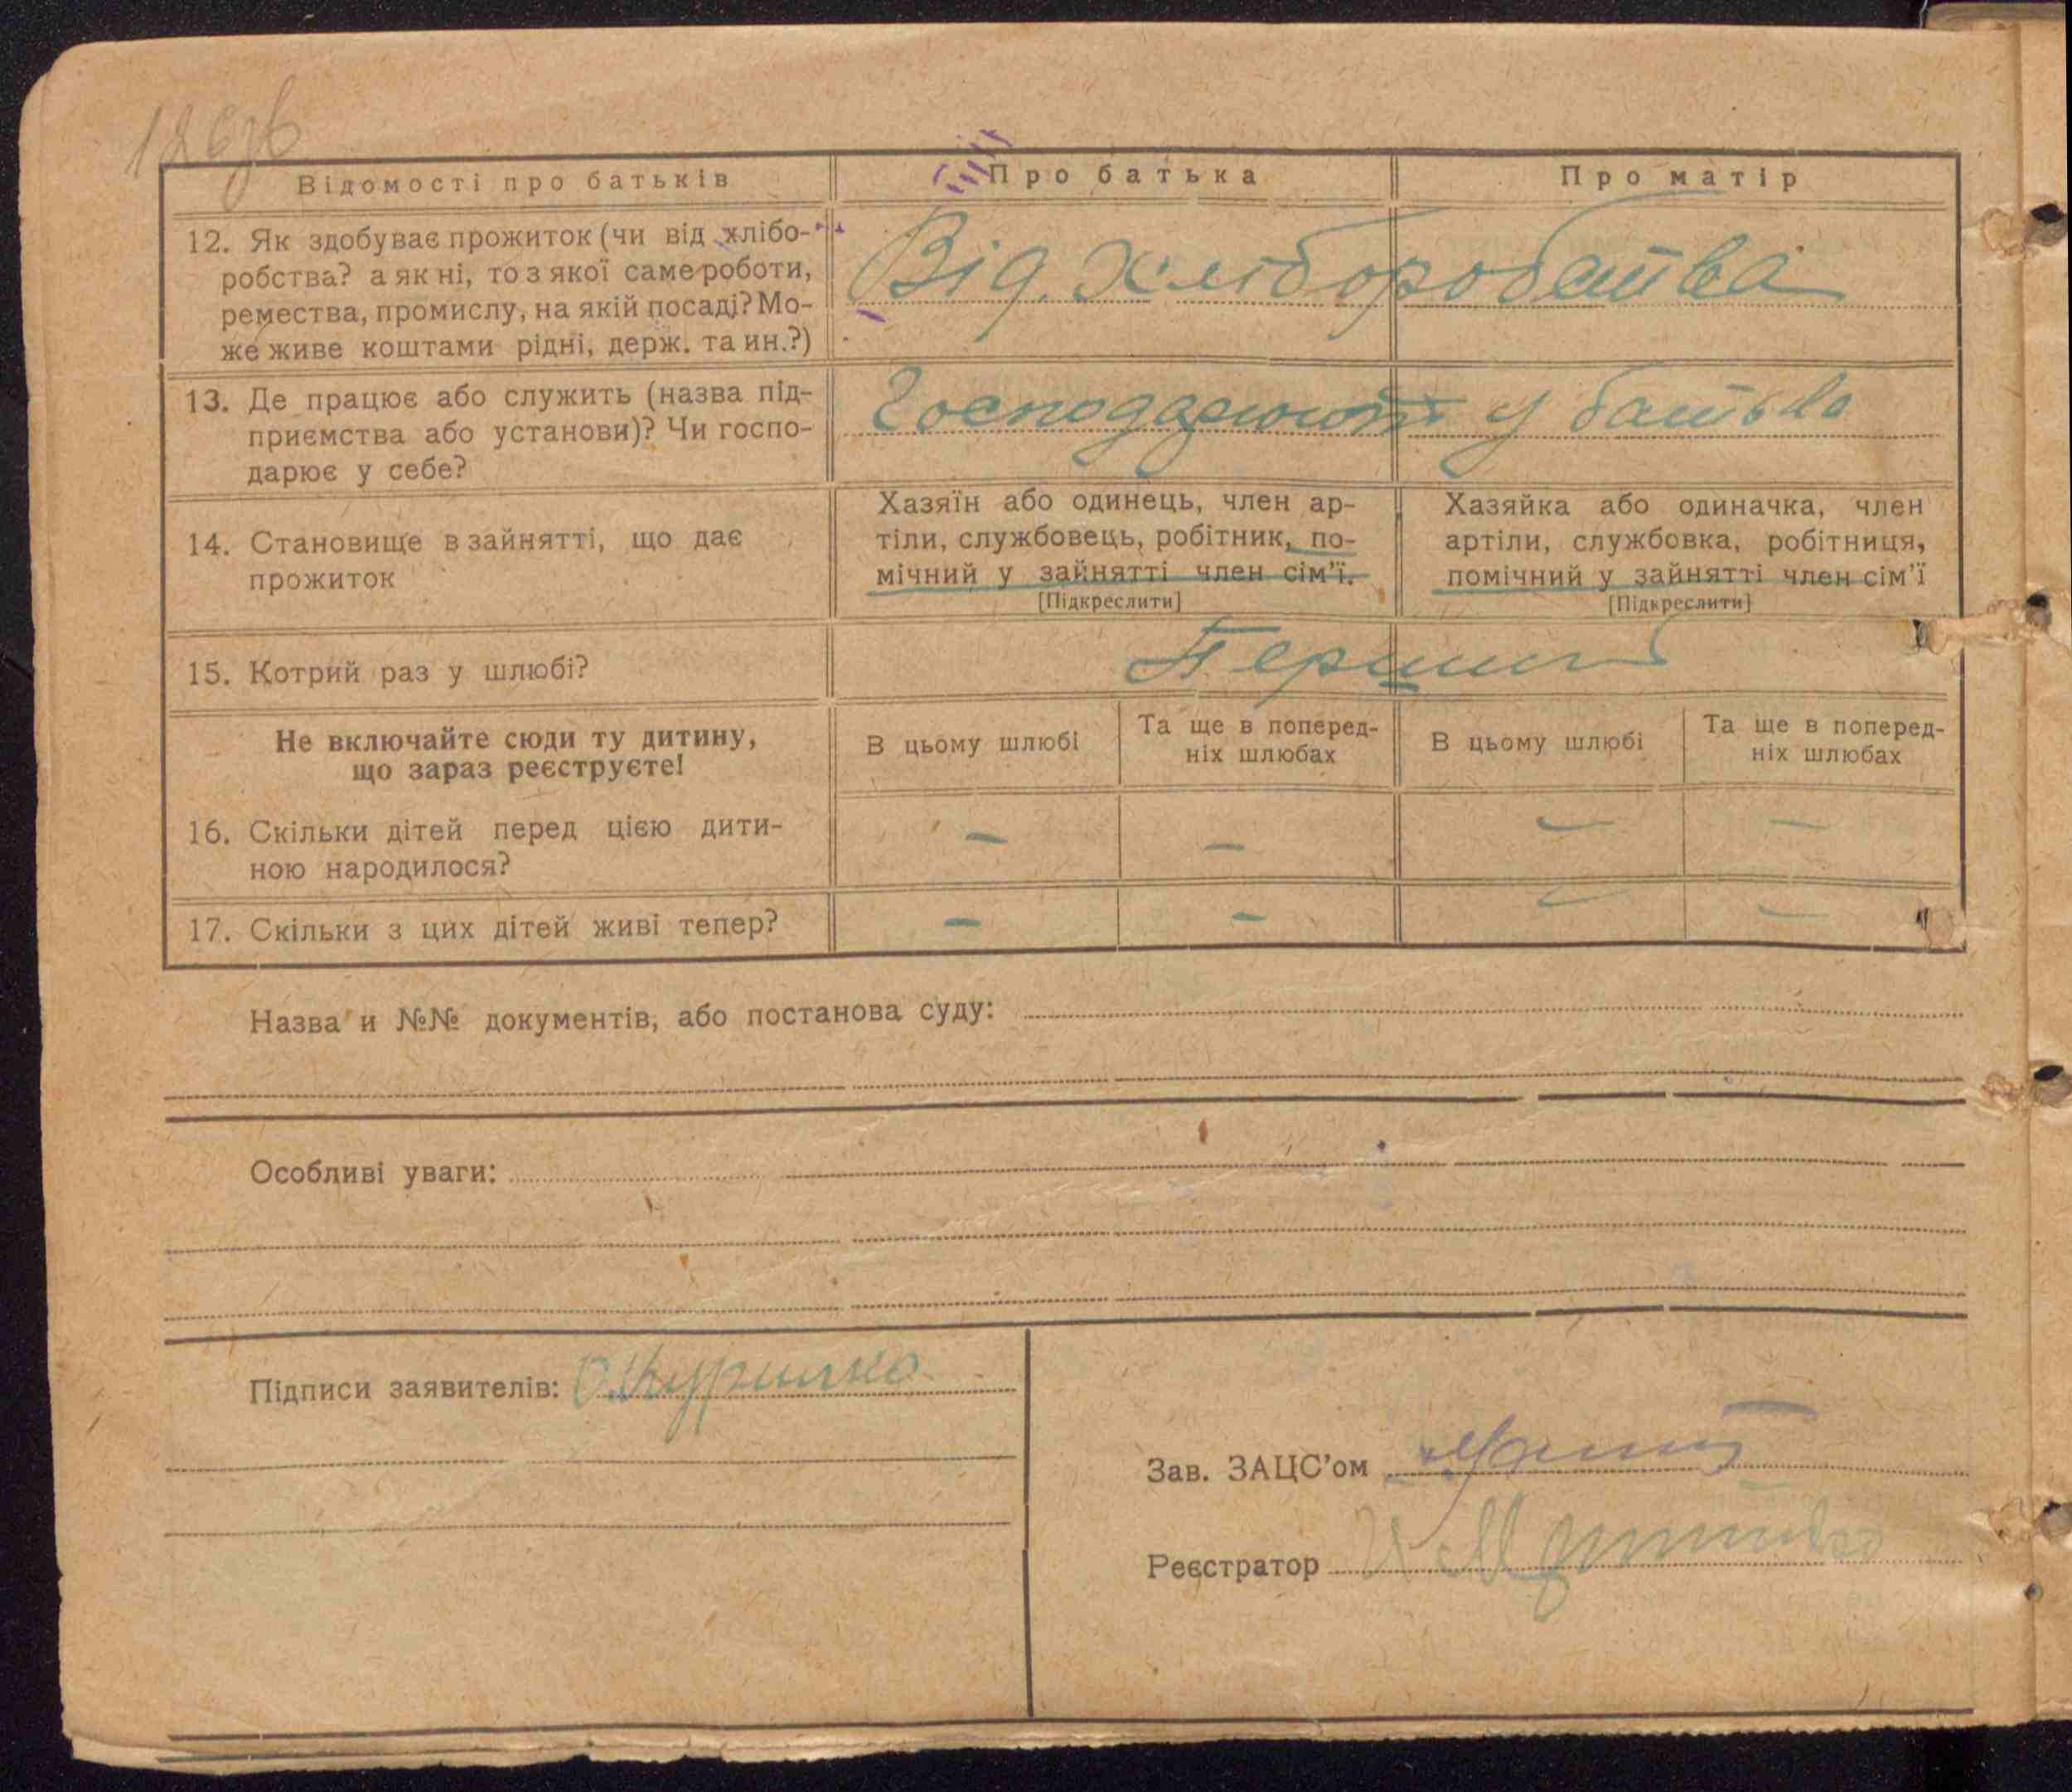 Відомості про батьків Про батька Про матір
12. Як здобуває прожиток (чи від хлібо-
робства? а як ні, то з якої саме роботи,
ремества, промислу, на якій посаді? Мо-
же живе коштами рідні, держ. та ин.?)
Від хліборобства
13. Де працює або служить (назва під-
приємства або установи)? Чи госпо-
дарює у себе?
Господарюють у батька
14. Становище в зайнятті, що дає
прожиток
Хазяїн або одинець, член ар-
тіли, службовець, робітник, по-
мічний у зайнятті член сім'ї.
[Підкреслити]
Хазяйка або одиначка, член
артіли, службовка, робітниця,
помічний у зайнятті член сім'ї
[Підкреслити]
15. Котрий раз у шлюбі?
Перший
Не включайте сюди ту дитину,
що зараз реєструєте!
В цьому шлюбі
Та ще в поперед-
ніх шлюбах
В цьому шлюбі
Та ще в поперед-
ніх шлюбах
16. Скільки дітей перед цією дити-
ною народилося?
— — — —
17. Скільки з цих дітей живі тепер?
— — — —
Назва и №№ документів, або постанова суду:
Особливі уваги:
Підписи заявителів:
Зав. ЗАЦС'ом
Реєстратор